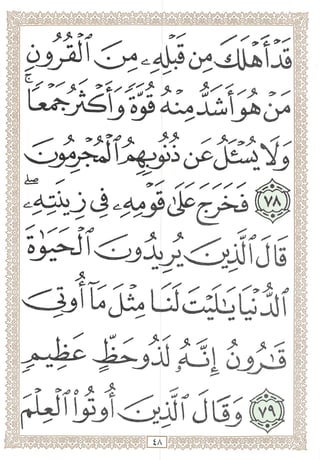 قَدۡ أَهۡلَكَ مِن قَبۡلِهِۦ مِنَ ٱلۡقُرُونِ
مَنۡ هُوَ أَشَدُّ مِنۡهُ قُوَّةٗ وَأَكۡثَرُ جَمۡعٗاۚ
وَلَا يُسۡـَٔلُ عَن ذُنُوبِهِمُ ٱلۡمُجۡرِمُونَ
٧٨ فَخَرَجَ عَلَىٰ قَوۡمِهِۦ فِي زِينَتِهِۦۖ
قَالَ ٱلَّذِينَ يُرِيدُونَ ٱلۡحَيَوٰةَ
ٱلدُّنۡيَا يَٰلَيۡتَ لَنَا مِثۡلَ مَآ أُوتِيَ
قَٰرُونُ إِنَّهُۥ لَذُو حَظٍّ عَظِيمٖ
٧٩ وَقَالَ ٱلَّذِينَ أُوتُواْ ٱلۡعِلۡمَ
٤٨